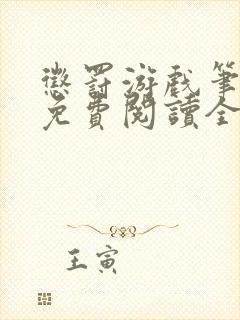 懲罰游戲筆
免費閱讀全
王寅